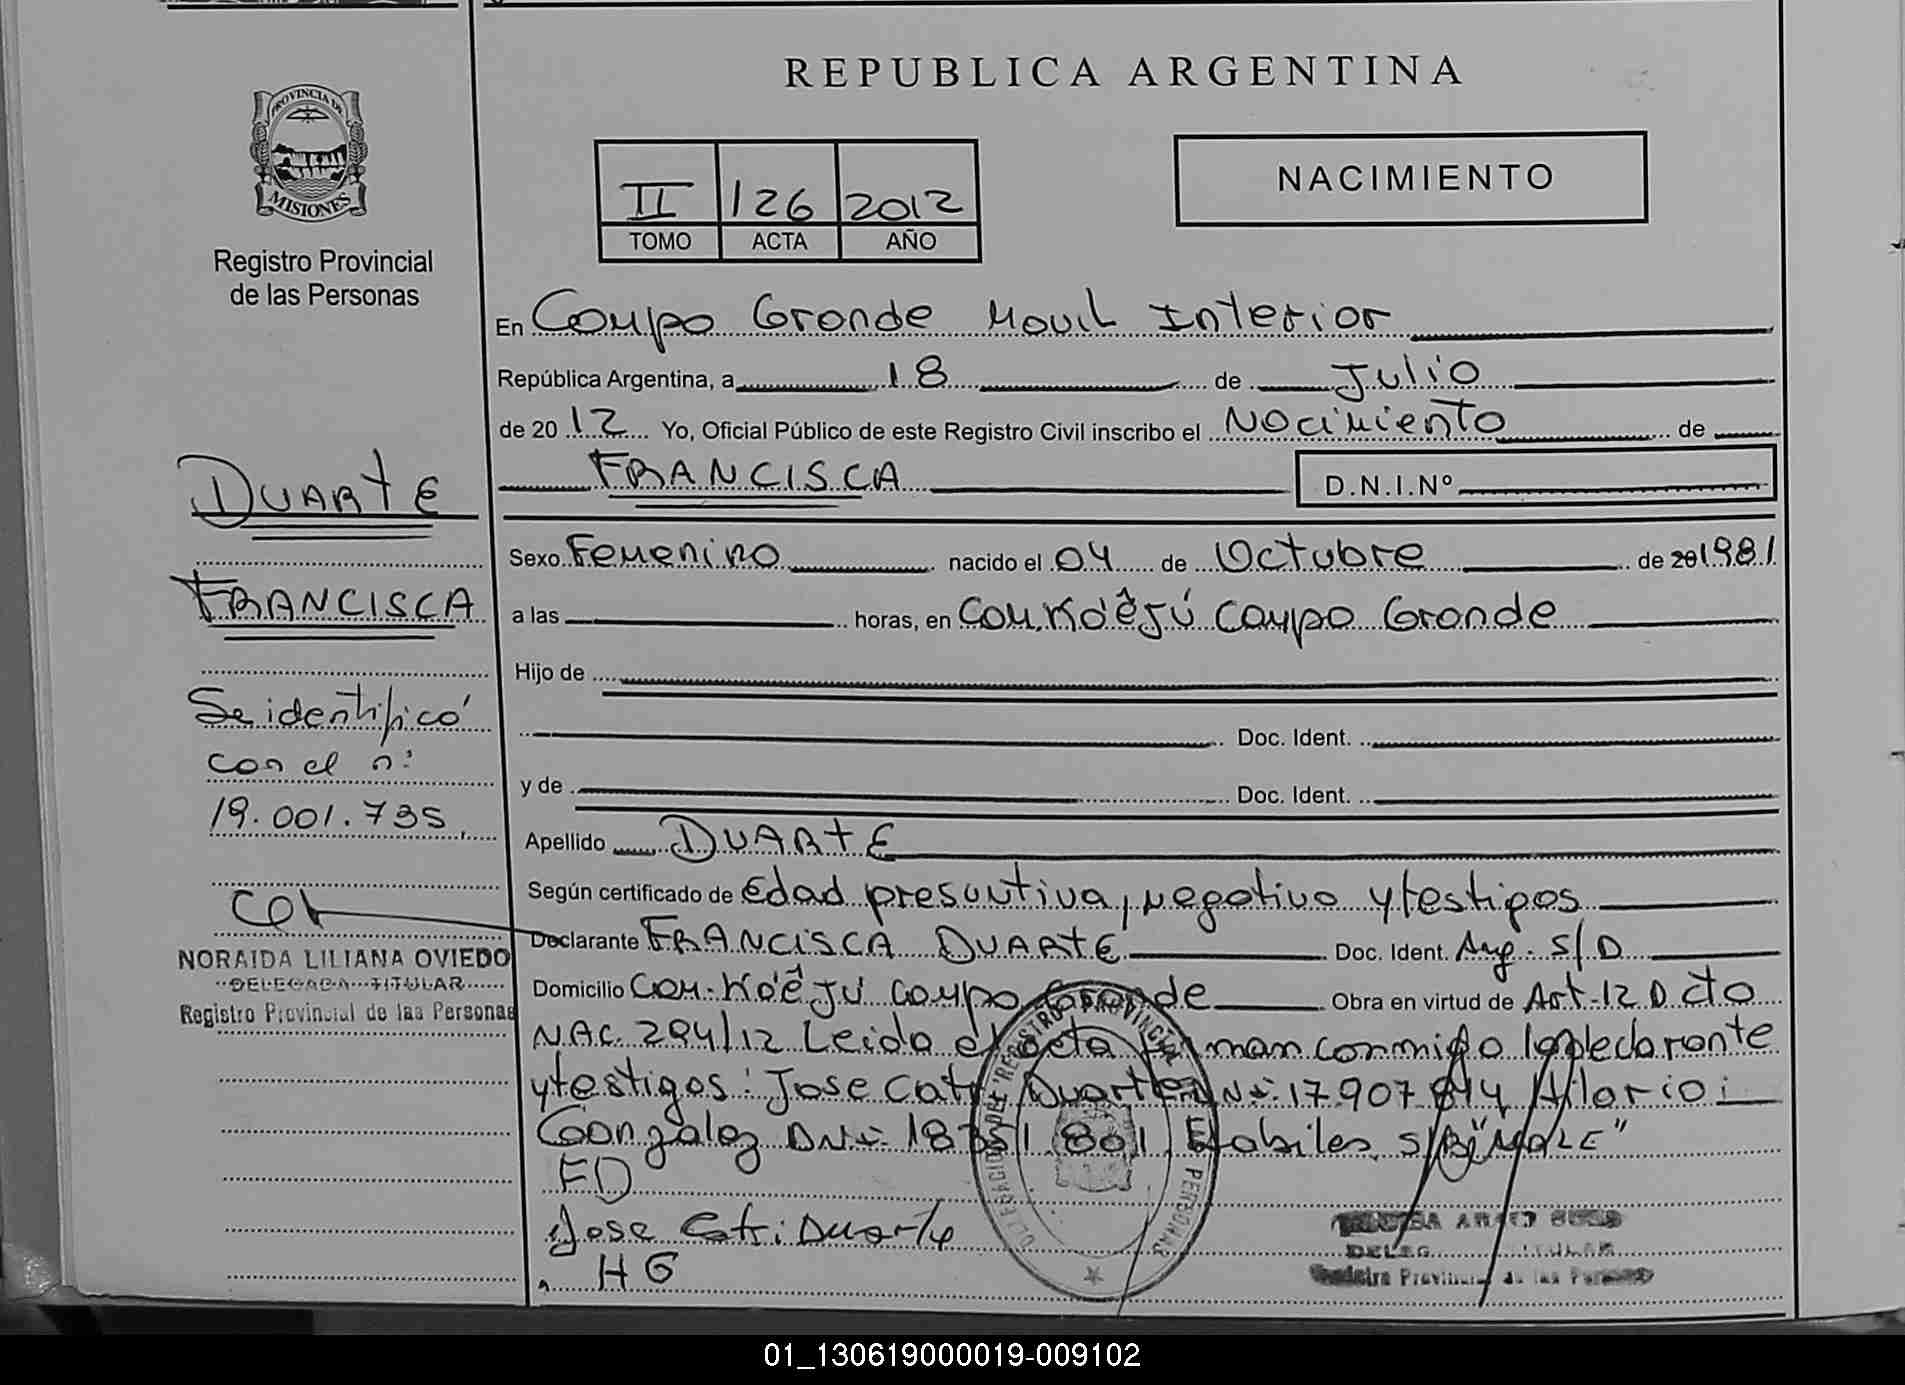 REPUBLICA ARGENTINA
PROVINCIA DE
MISIONES
Registro Provincial
de las Personas
II 126 2012
TOMO ACTA AÑO
NACIMIENTO
En Campo Grande Movil Interior
República Argentina, a 18 de Julio
de 2012 Yo, Oficial Público de este Registro Civil inscribo el Nacimiento de
FRANCISCA D.N.I.Nº
DUARTE
Sexo Femenino nacido el 04 de Octubre de 20 1981
FRANCISCA
a las horas, en Com. Ka'êjú Campo Grande
Hijo de
Se identificó
con el nº
19.001.735
Doc. Ident.
y de Doc. Ident.
Apellido DUARTE
Según certificado de edad presuntiva, negativo y testigos
Declarante FRANCISCA DUARTE Doc. Ident. Arg. S/D
NORAIDA LILIANA OVIEDO
DELEGADA TITULAR
Registro Provincial de las Personas
Domicilio Com. Ka'êjú Campo Grande Obra en virtud de Art. 12 Dcto
NAC. 294/12 Leida el acta firman conmigo la declarante
y testigos: Jose Catri Duarte DNI: 17.907.814 Hilario
Gonzalez DNI: 18.351.801 Habiles S/B "VALE"
FD
Jose Catri Duarte
HG
DELEGACION DEL REGISTRO PROVINCIAL DE LAS PERSONAS
TITULAR
Registro Provincial de las Personas
01_130619000019-009102